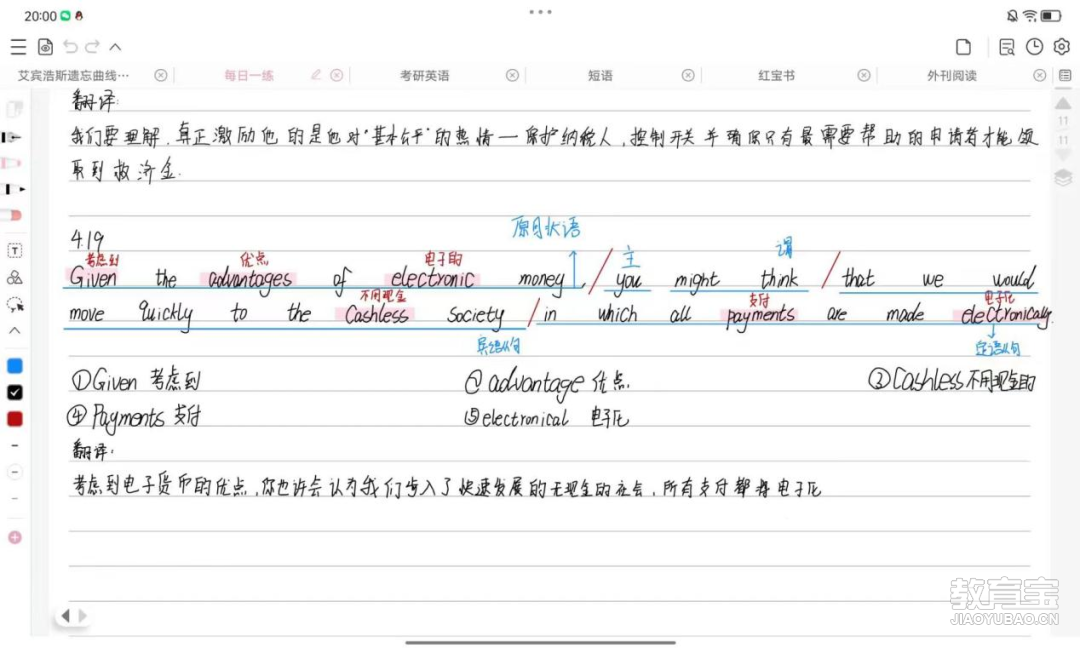 20:00
艾宾浩斯遗忘曲线… 每日一练 考研英语 短语 红宝书 外刊阅读
翻译:
我们要理解,真正激励他的是他对"基本公平"的热情一保护纳税人,控制开关并确保只有最需要帮助的申请者才能领
取到救济金.
11
11
4.19
原因状语
考虑到 优点 电子的 主 谓
Given the advantages of electronic money, / you might think / that we would
不用现金 支付 电子化
move quickly to the Cashless Society / in which all payments are made electronically.
宾语从句 定语从句
①Given 考虑到 ②advantage 优点. ③Cashless不用现金的
④Payments 支付 ⑤electronical 电子化
翻译:
考虑到电子货币的优点,你也许会认为我们步入了快速发展的无现金的社会,所有支付都将电子化
教育宝
JIAOYUBAO.CN